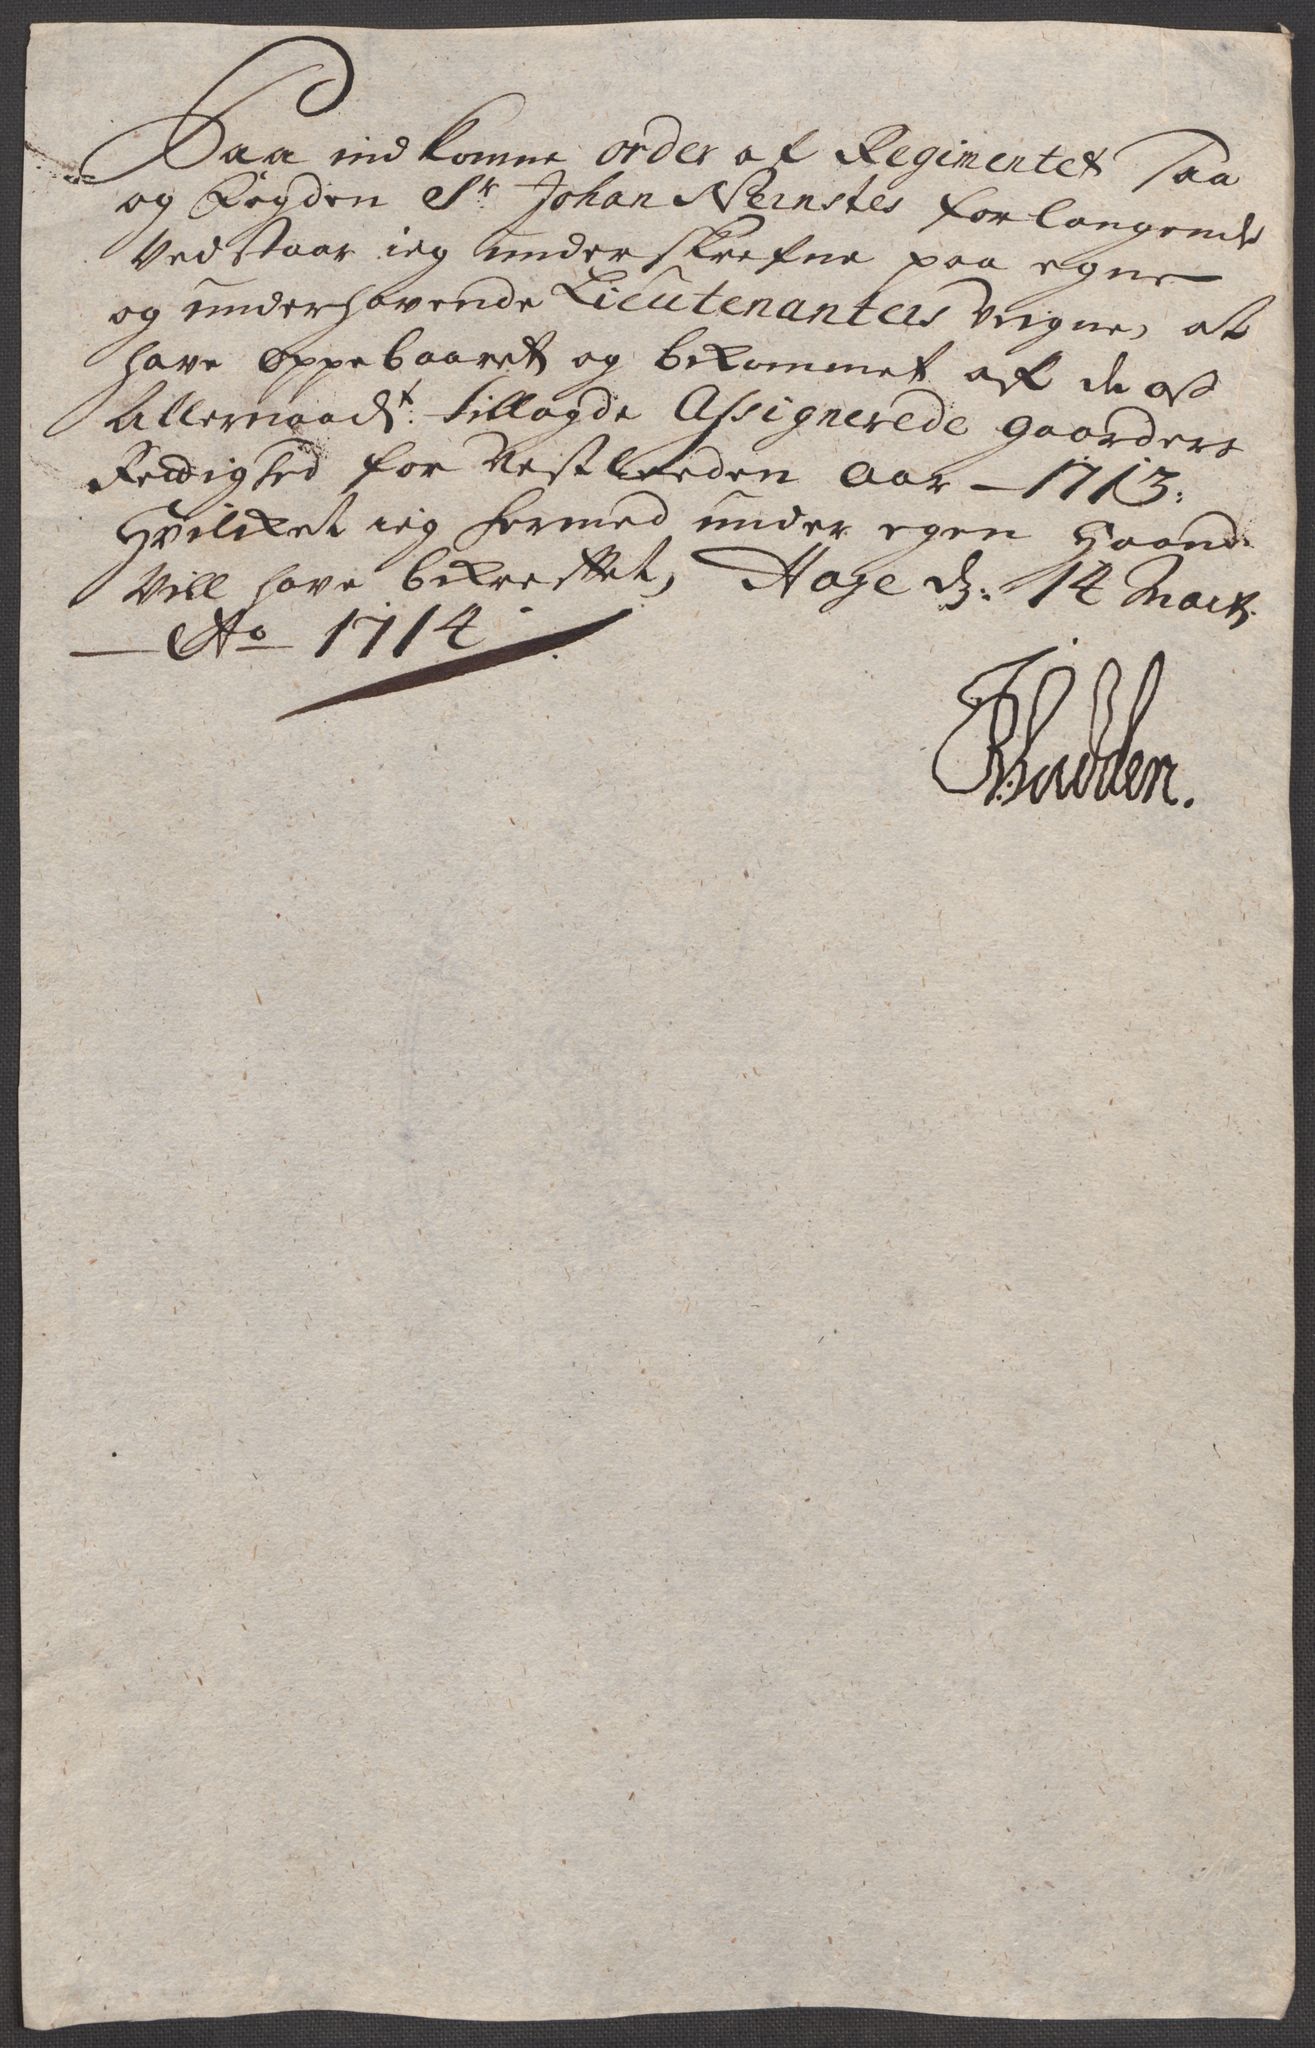 Paa ind komne order af Regimentet saa
og Fogden Sr. Johan Wernstes for langende
Ved staar ieg under skrefne paa egne
og underhavende Lieutenanters veigne, at
have oppebaaret og bekommet af de os
Allernaadst. tillagde Assignerede gaarders
Rettighed for Nestleeden aar – 1713:
Hvilket ieg hermed under egen Haand
Vill have bekreftet, Hage d: 14 Marty
Ao 1714